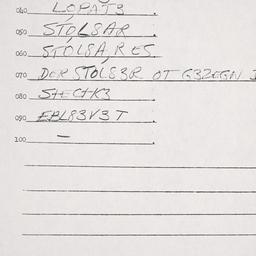 040 LOPAT3.
050 STÓL8AR.
060 STÓL8A,R ES.
070 DER STÓLS3R OT G3ZEGN
080 SHECHK3.
090 EPL83V3T.
100 —.